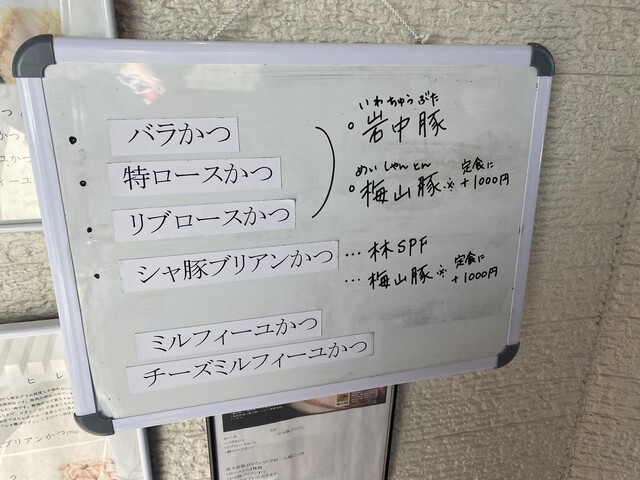 バラかつ
特ロースかつ
リブロースかつ
いわちゅうぶた
岩中豚
めいしゃんとん
梅山豚※定食に+1000円
シャ豚ブリアンかつ
…林SPF
…梅山豚※定食に+1000円
ミルフィーユかつ
チーズミルフィーユかつ
ヒレ
ブリアンかつ